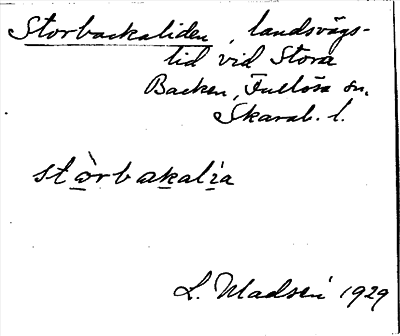 Storbackaliden, landsvägs-
lid vid Stora
Backen, Fullösa sn.
Skarab. l.
stòrbakalia
L. Madsén 1929